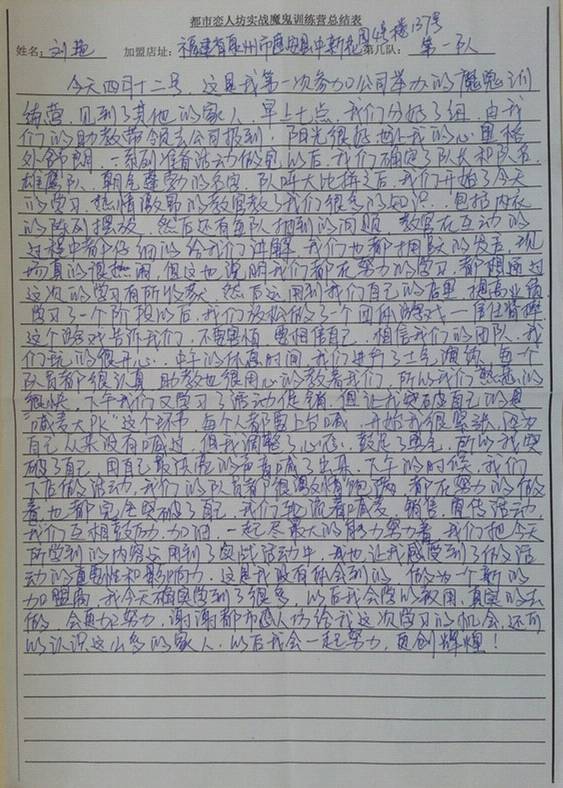 都市恋人坊实战魔鬼训练营总结表
姓名：刘艳 加盟店址：福建省泉州市惠安县中新花园4号楼137号 第几队：第一队
今天四月十二号，这是我第一次参加公司举办的魔鬼训
练营，见到了其他的家人，早上七点，我们分好了组，由我
们的助教带领去公司报到！阳光很好，我的心里格
外舒朗，一系列准备活动做完以后，我们确定了队长和队名，
雄鹰队，朝气蓬勃的名字，队呼大比拼之后，我们开始了今天
的学习，热情激昂的教官教了我们很多的知识，包括内衣
的陈列摆放，然后还有每队抽到的问题，教官在互动的
过程中都仔细的给我们讲解，我们也都踊跃的发言，现
场真的很热闹，但这也说明我们都在努力的学习，都想通过
这次的学习有所收获，然后运用到我们自己的店里，提高业绩，
学习了一个阶段以后，我们放松做了一个团体游戏—信任背摔
这个游戏告诉我们，不要畏惧，要相信自己，相信我们的团队，我
们玩的很开心，中午的休息时间，我们进行了士气演练，每一个
队员都很认真，助教也很用心的教着我们，所以我们熟悉的
很快，下午我们又学习了活动促销，但让我突破自己的是
“喊麦大PK”这个环节，每个人都要上台喊，开始我很紧张，因为
自己从来没有喊过，但我调整了心态，鼓足了勇气，所以我突
破了自己，用自己最洪亮的声音喊了出来，下午的时候，我们
下店做活动，我们的队员都很激情响应，都在努力的做
着，也都完全突破了自己，我们轮流着喊麦，销售，宣传活动
我们互相鼓励，加油，一起尽最大的能力努力着，我们把今天
所学到的内容运用到了实战活动中，我也让我感受到了做活
动的重要性和影响力，这是我没有体会到的，做为一个新的
加盟商，我今天确实学到了很多，以后我会学以致用，真实的去
做，会更加努力，谢谢都市恋人坊给我这次学习的机会，还可
以认识这么多的家人，以后我会一起努力，再创辉煌！